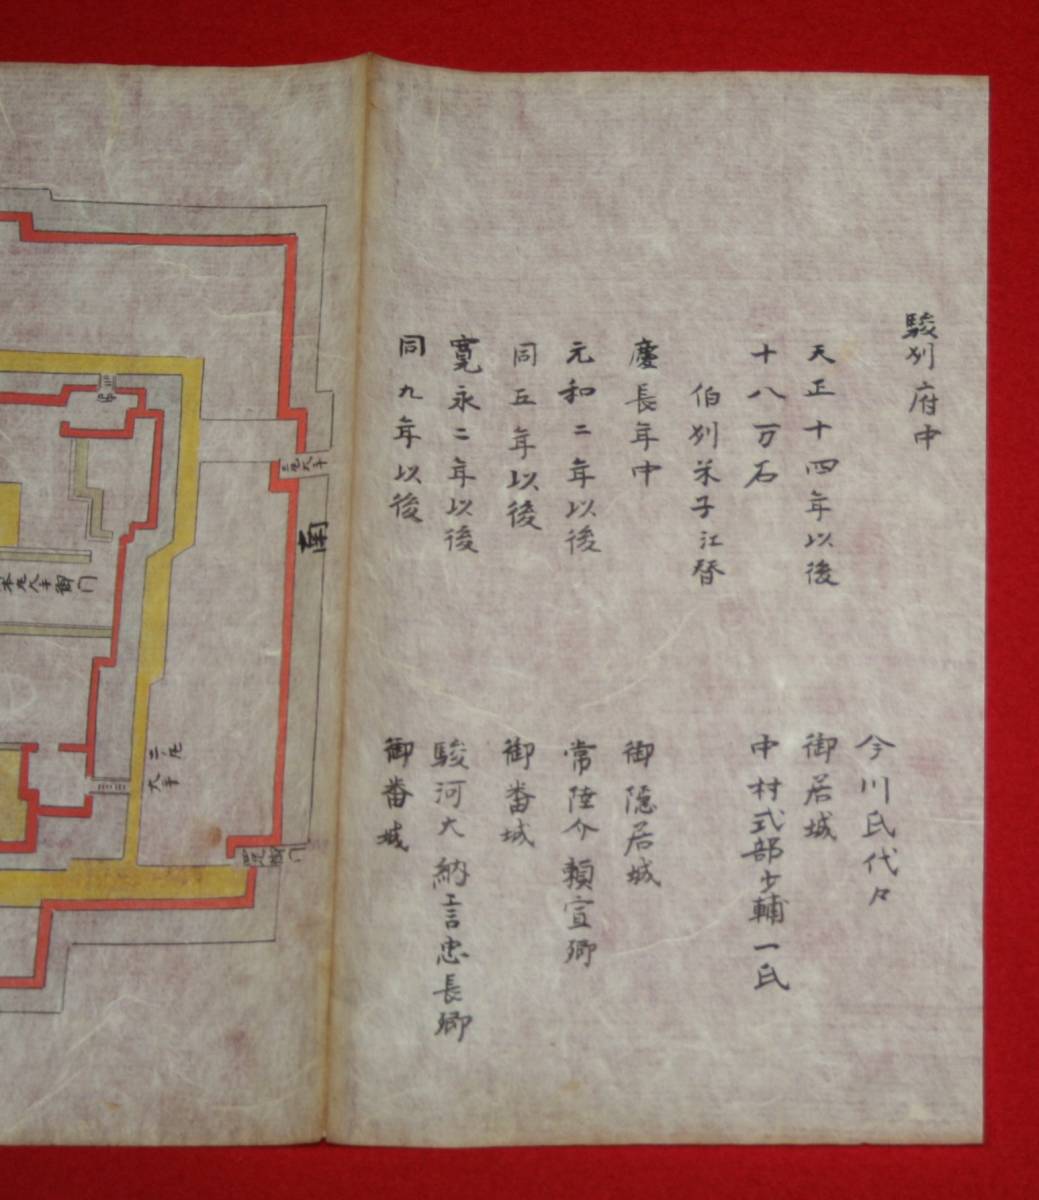 駿刕府中
今川氏代々
天正十四年以後　御居城
十八万石　中村式部少輔一氏
伯刕米子江替
慶長年中　御隠居城
元和二年以後　常陸介頼宣卿
同五年以後　御番城
寛永二年以後　駿河大納言忠長卿
同九年以後　御番城
南
三丸大手
二ノ丸
大手
本丸大手御門